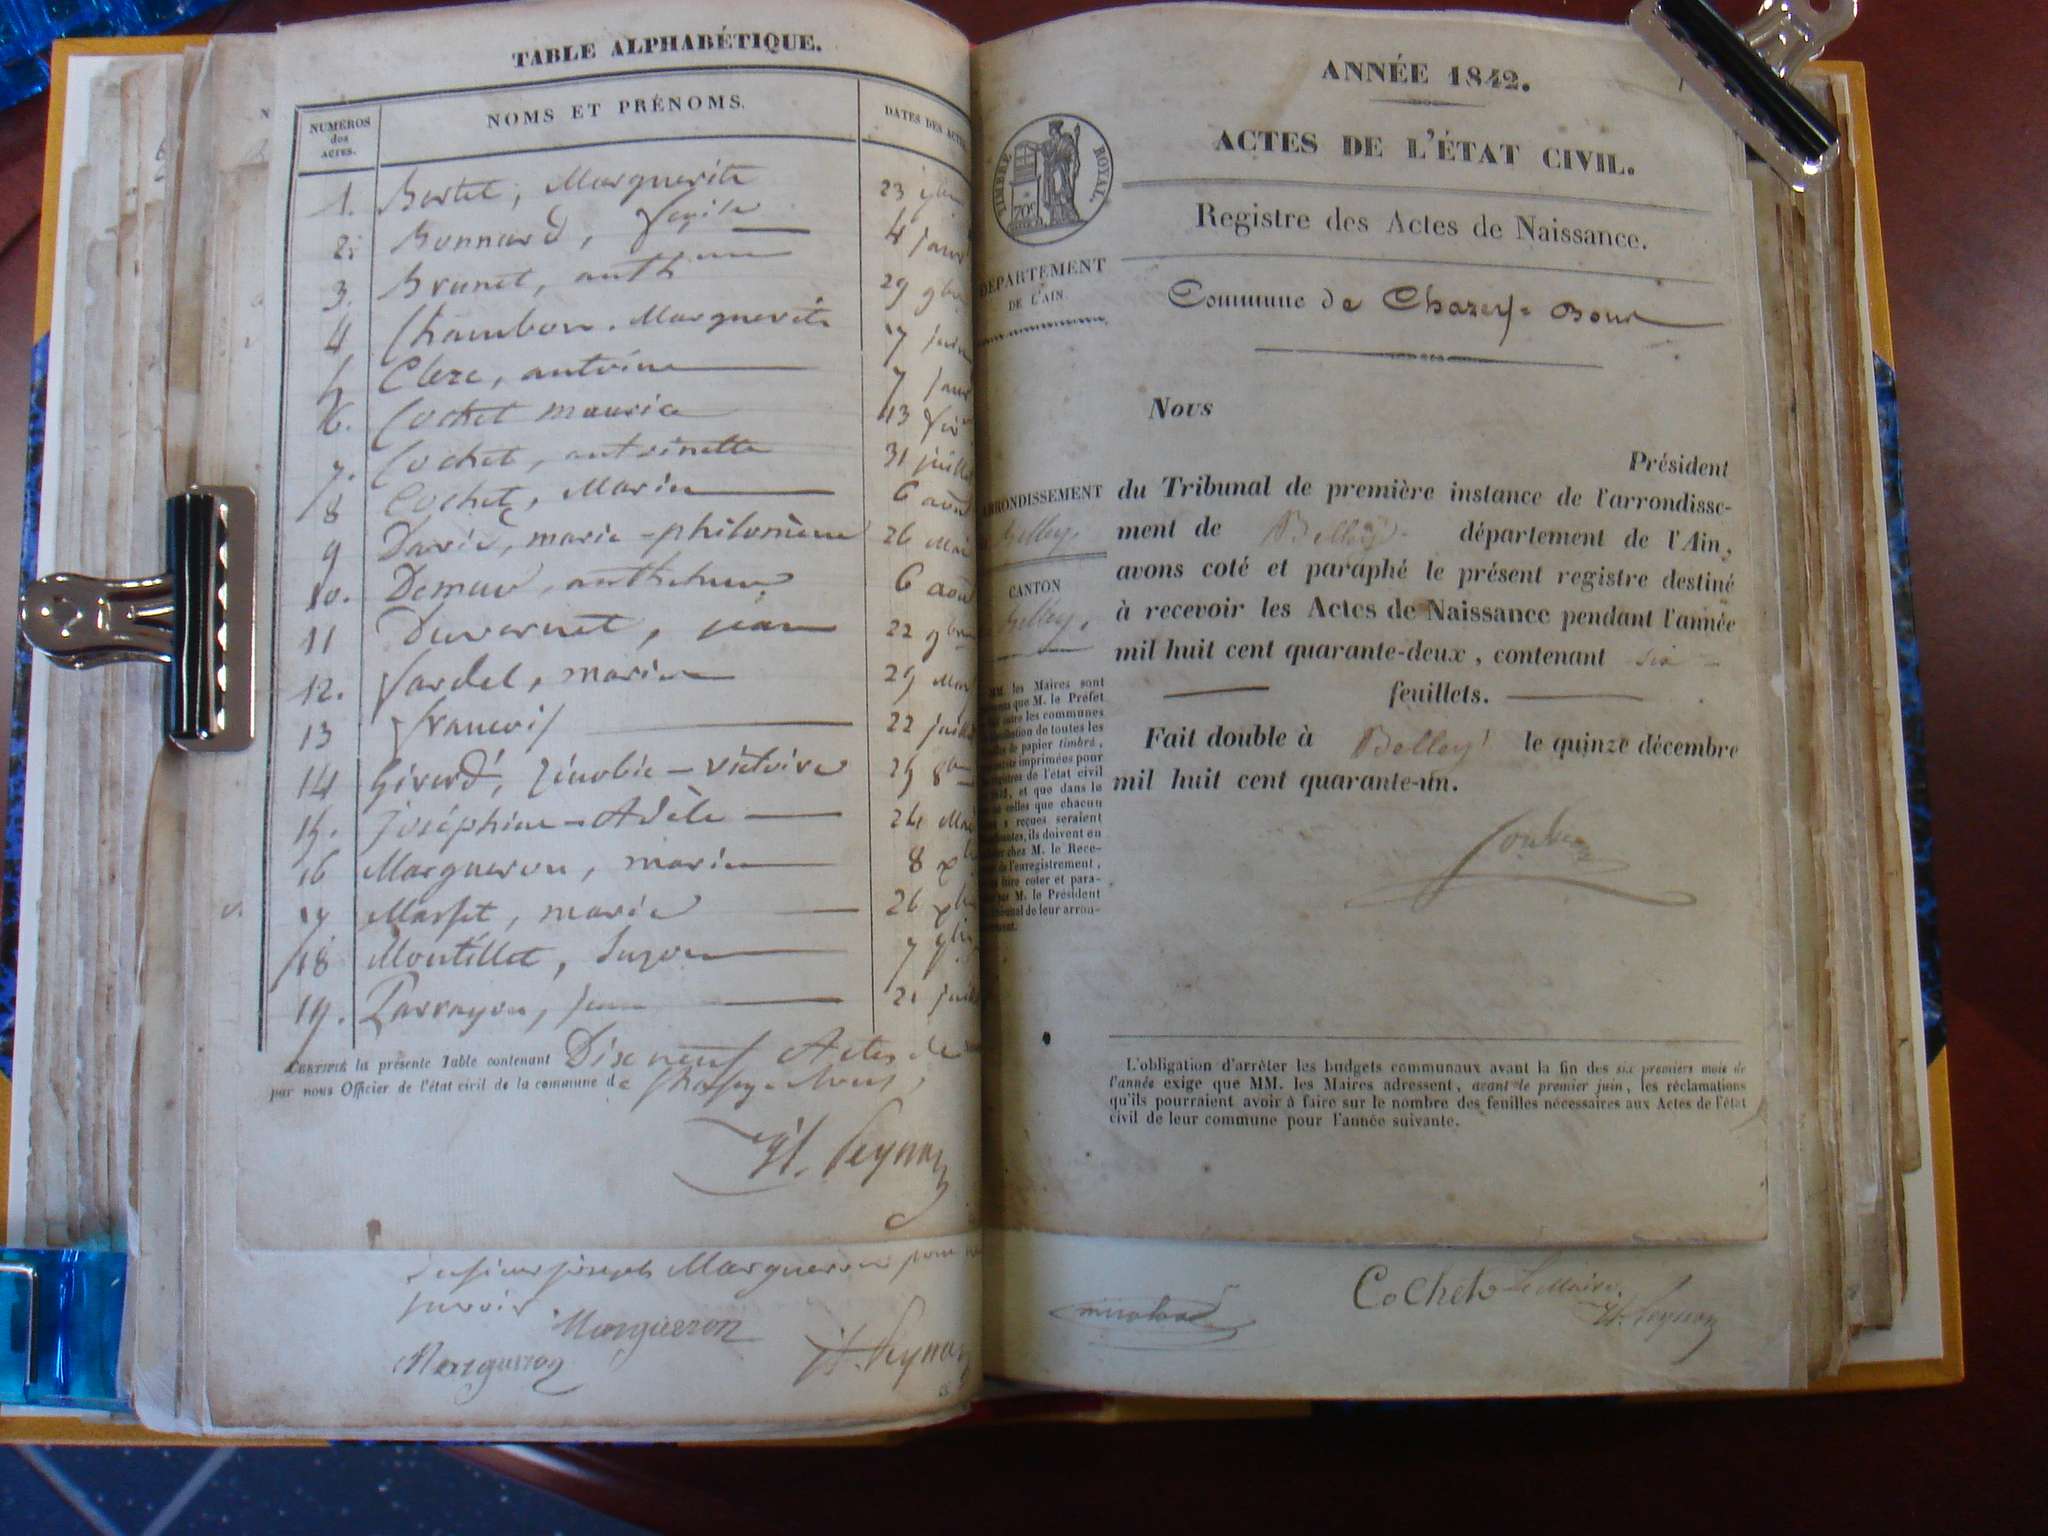 TABLE ALPHABÉTIQUE.
NUMÉROS
des
ACTES.
NOMS ET PRÉNOMS.
DATES DES ACTES
1. Bertet, Marguerite 23
2. Bonnard, 4 janv
3. Brunet, anth 29 9bre
4 Chambon. Marguerite 17
5 Clerc, antoine 7 janv
6. Cochet maurice 13 fév
7. Cochet, antoinette 31 juillet
8 Cochet, Marie 6 aout
9 David, marie-philomène 26 Mai
10. anthelme 6 aout
11 Duvernet, jean 22 9bre
12. fardel, marie 29
13 françois 22 juillet
14 Girerd, Zénobie-victoire 29 8bre
15. Joséphine-Adèle 24 Mai
16 Margueron, marie 8 xbre
17 Masset, marie 26 xbre
18 Montillet, Suzon 7 9bre
19. Parrayon, jean 21
CERTIFIÉ la présente Table contenant Dix neuf Actes de
par nous Officier de l'état civil de la commune de
Ht. Peynon
joseph Margueron pour
Margueron
Margueron
Ht. Peynon
ANNÉE 1842.
ACTES DE L'ÉTAT CIVIL.
TIMBRE ROYAL.
70c
Registre des Actes de Naissance.
DÉPARTEMENT
DE L'AIN.
Commune de Chazey-Bons
Nous
Président
ARRONDISSEMENT
Belley.
CANTON
Belley.
du Tribunal de première instance de l'arrondisse-
ment de Belley département de l'Ain,
avons coté et paraphé le présent registre destiné
à recevoir les Actes de Naissance pendant l'année
mil huit cent quarante-deux, contenant six
feuillets.
Fait double à Belley le quinze décembre
mil huit cent quarante-un.
MM. les Maires sont
que M. le Préfet
les communes
de toutes les
de papier timbré,
imprimées pour
de l'état civil
, et que dans le
celles que chacun
reçues seraient
, ils doivent en
chez M. le Rece-
de l'enregistrement,
faire coter et para-
M. le Président
de leur arron-
L'obligation d'arrêter les budgets communaux avant la fin des six premiers mois de
l'année exige que MM. les Maires adressent, avant le premier juin, les réclamations
qu'ils pourraient avoir à faire sur le nombre des feuilles nécessaires aux Actes de l'état
civil de leur commune pour l'année suivante.
Cochet Le Maire.
Ht. Peynon